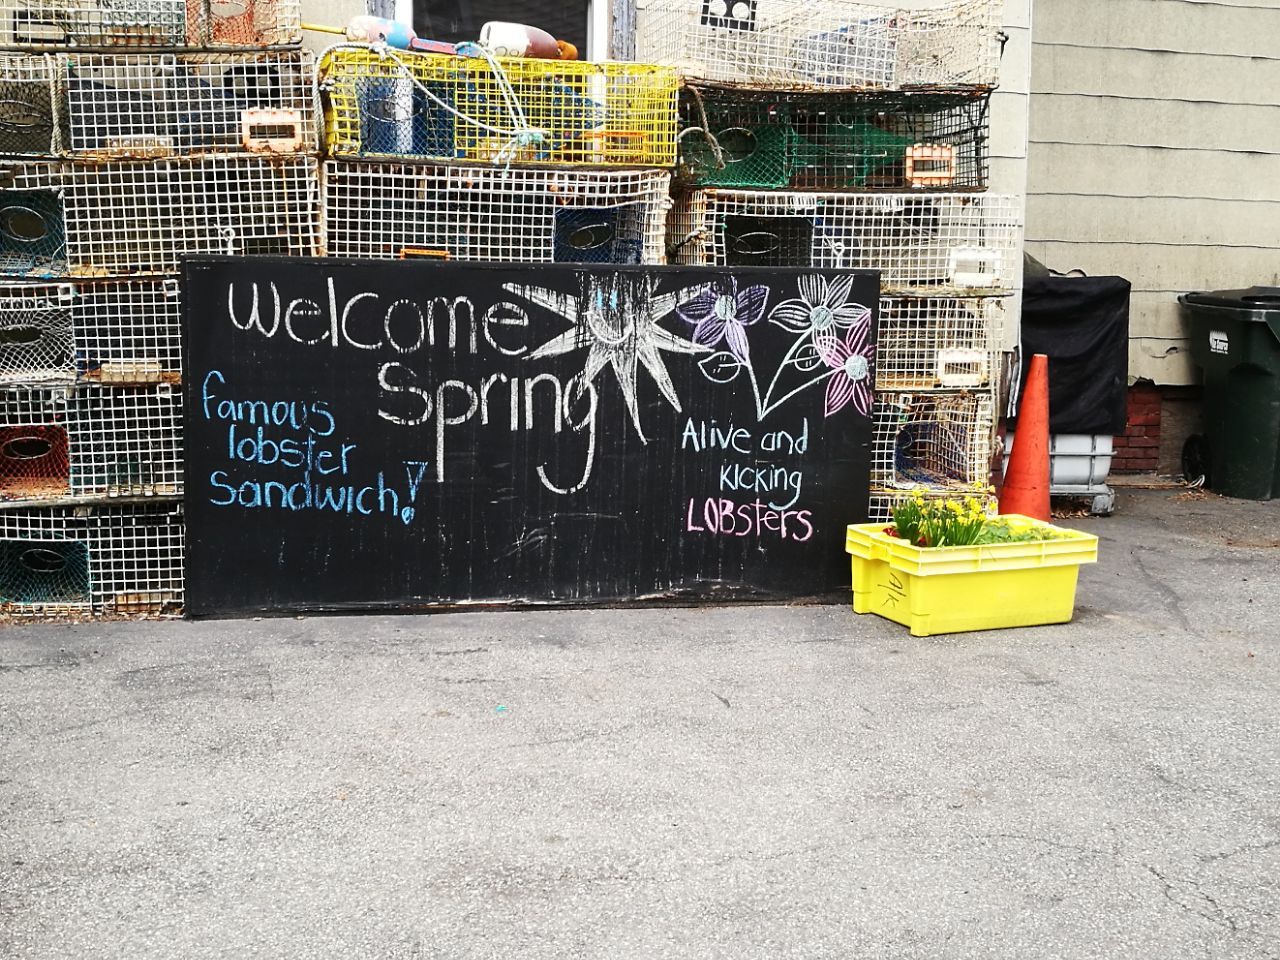 Welcome
Spring
famous
lobster
Sandwich!
Alive and
Kicking
LOBsters
A/k